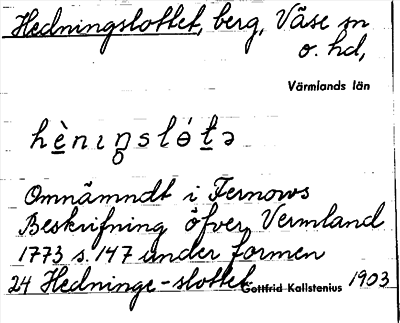 Hedningslottet, berg, Väse sn
o. hd,
Värmlands län
hènıŋslótə
Omnämndt i Fernows
Beskrifning öfver Vermland
1773 s. 147 under formen
24 Hedninge-slottet
Gottfrid Kallstenius 1903